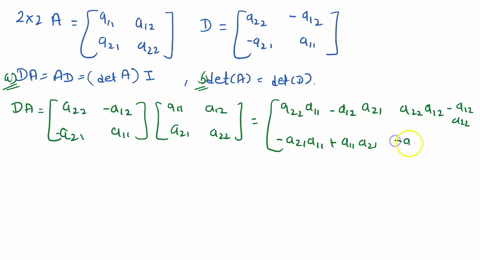 2×2 A = [a11 a12 D = [a22 -a12
a21 a22] -a21 a11]
a) DA = AD = (det A) I , b) det(A) = det(D).
DA = [a22 -a12 [a11 a12 = [a22 a11 - a12 a21 a22 a12 - a12 a22
-a21 a11] a21 a22] -a21 a11 + a11 a21 -a